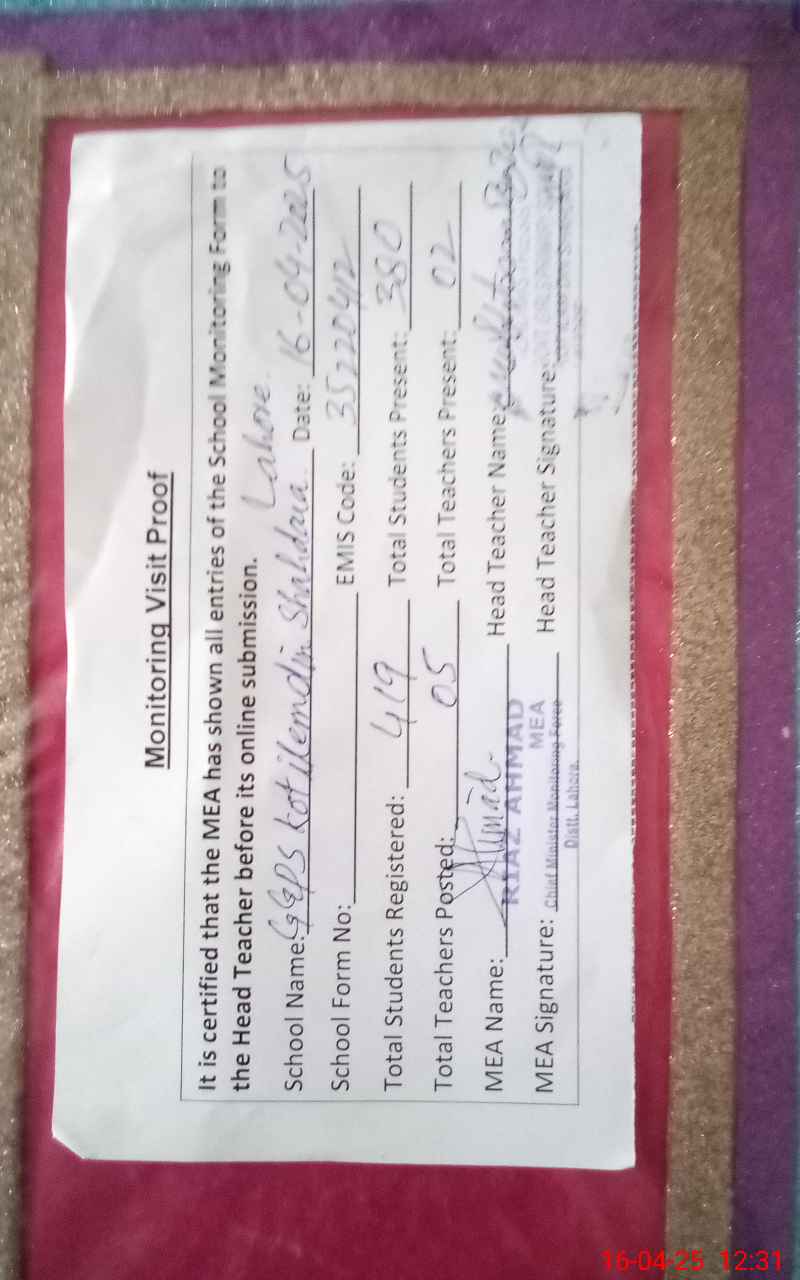 Monitoring Visit Proof
It is certified that the MEA has shown all entries of the School Monitoring Form to
the Head Teacher before its online submission.
School Name: GGPS Kot ilemdin Shahdara Lahore. Date: 16-04-2025
School Form No: EMIS Code: 35220412
Total Students Registered: 419 Total Students Present: 380
Total Teachers Posted: 05 Total Teachers Present: 02
MEA Name: Ahmad Head Teacher Name:
RIAZ AHMAD
MEA
MEA Signature: Chief Minister Monitoring Force Head Teacher Signature:
Distt. Lahore.
16-04-25 12:31